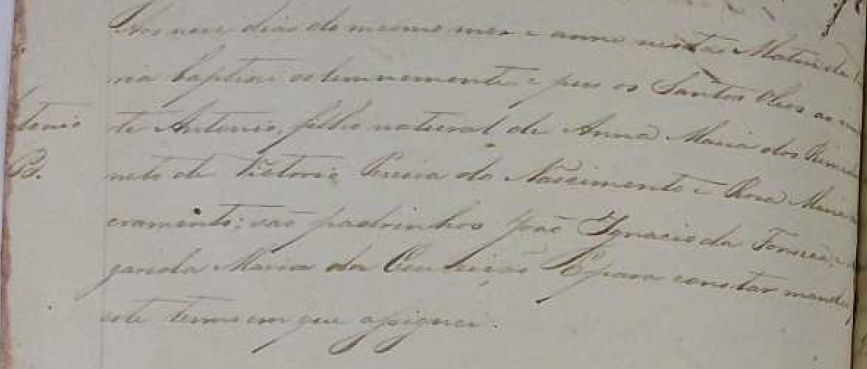 Aos nove dias do mesmo mes e anno nesta Matriz da
ria baptisei solemnemente e pus os Santos Oleos ao
tonio
te Antonio, filho natural de Anna Maria dos
B.
neto de Victorio Pereira do Nascimento e Rosa Maria
cramento; são padrinhos João Ignacio da Fonseca, e
garida Maria da Conceição E para constar mandei
este termo em que assignei.